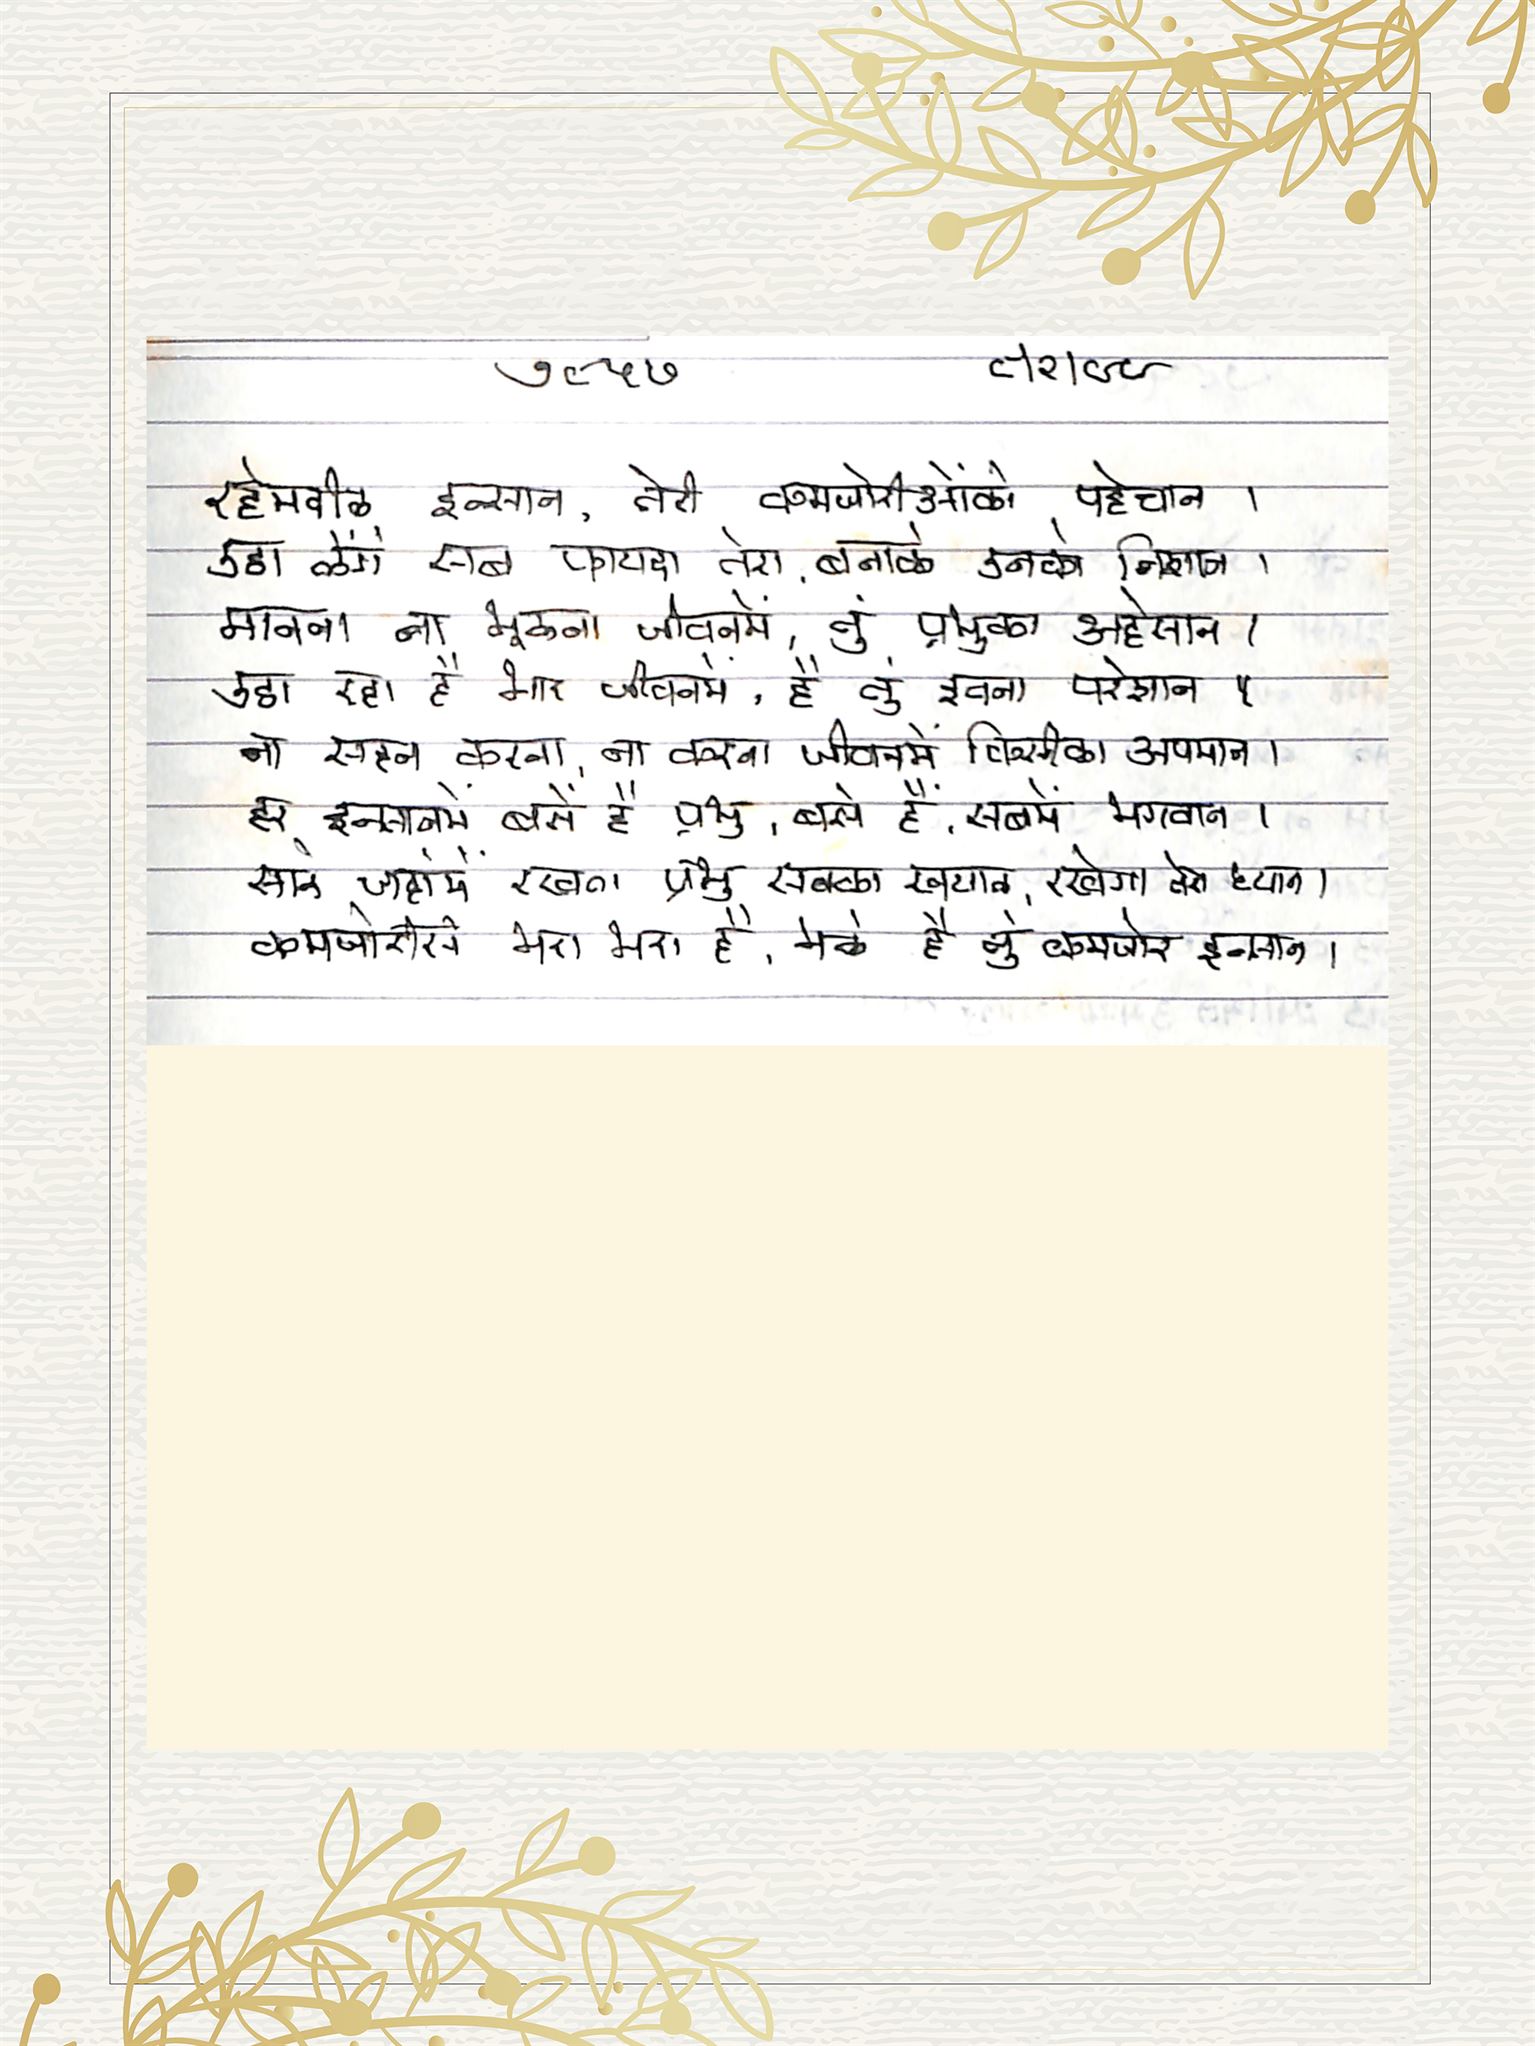 ७९५७
रहेमदील इन्सान, तेरी कमजोरीओंको पहेचान ।
उठा लेंगे सब फायदा तेरा, बनाके उनको निशान ।
मानना ना भूलना जीवनमें, तुं प्रभुका अहेसान ।
उठा रहा है भार जीवनमें, है तुं इतना परेशान ।
ना सहन करना, ना करना जीवनमें किसीका अपमान ।
हर इन्सानमें बसें है प्रभु, बसे हैं, सबमें भगवान ।
सारे जहांमें रखता प्रभु सबका खयाल, रखेगा तेरा ध्यान ।
कमजोरीसे भरा भरा है, भले है तुं कमजोर इन्सान ।